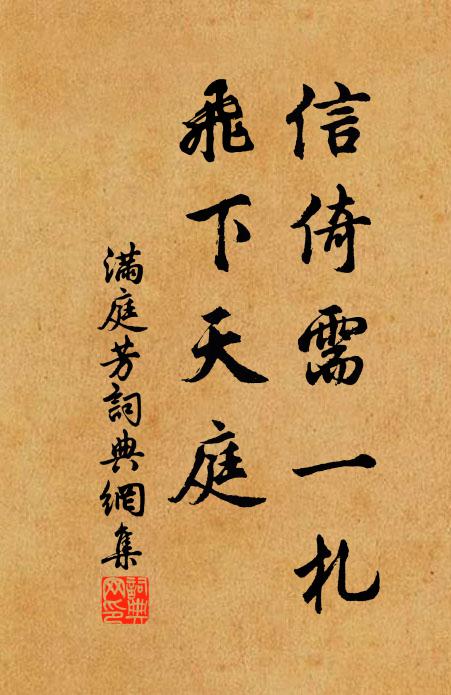 信倚需一札
飛下天庭
滿庭芳詞典網集
詞典
网印